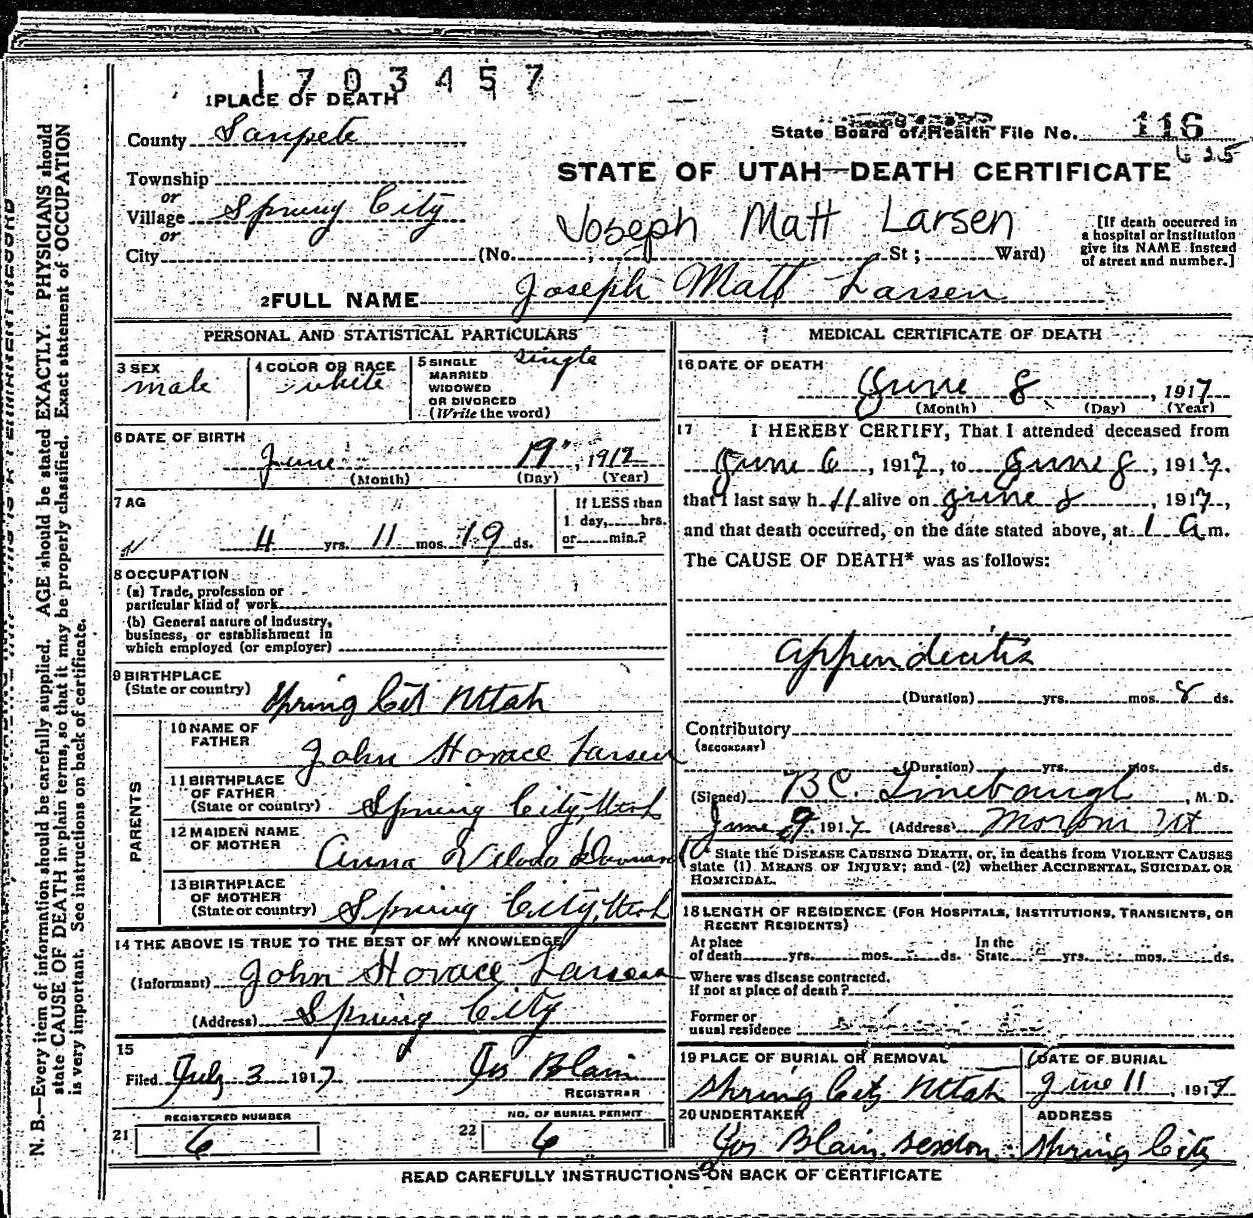 1703457
1 PLACE OF DEATH
County Sanpete
State Board of Health File No. 116
625
STATE OF UTAH—DEATH CERTIFICATE
Township
or
Village Spring City
or
City (No. ; St ; Ward)
Joseph Matt Larsen
[If death occurred in
a hospital or institution
give its NAME instead
of street and number.]
2 FULL NAME Joseph Matt Larsen
PERSONAL AND STATISTICAL PARTICULARS
3 SEX
male
4 COLOR OR RACE
white
5 SINGLE
MARRIED
WIDOWED
OR DIVORCED
(Write the word)
single
6 DATE OF BIRTH
June 19, 1912
(Month) (Day) (Year)
7 AG
4 yrs. 11 mos. 19 ds.
If LESS than
1 day, hrs.
or min.?
8 OCCUPATION
(a) Trade, profession or
particular kind of work
(b) General nature of industry,
business, or establishment in
which employed (or employer)
9 BIRTHPLACE
(State or country) Spring Cit Utah
PARENTS
10 NAME OF
FATHER
John Horace Larsen
11 BIRTHPLACE
OF FATHER
(State or country) Spring City, Utah
12 MAIDEN NAME
OF MOTHER
Anna
13 BIRTHPLACE
OF MOTHER
(State or country) Spring City, Utah
14 THE ABOVE IS TRUE TO THE BEST OF MY KNOWLEDGE
(Informant) John Horace Larsen
(Address) Spring City
15
Filed July 3 1917 Jos Blain
REGISTRAR
REGISTERED NUMBER
21 6
NO. OF BURIAL PERMIT
22 6
MEDICAL CERTIFICATE OF DEATH
16 DATE OF DEATH
June 8, 1917
(Month) (Day) (Year)
17 I HEREBY CERTIFY, That I attended deceased from
June 6, 1917, to June 8, 1917.
that I last saw h alive on June 8, 1917,
and that death occurred, on the date stated above, at 1 a m.
The CAUSE OF DEATH* was as follows:
appendicitis
(Duration) yrs. mos. 8 ds.
Contributory
(SECONDARY)
(Duration) yrs. mos. ds.
(Signed) B C. Linebaugh, M. D.
June 9, 1917 (Address) Moroni Ut
State the DISEASE CAUSING DEATH, or, in deaths from VIOLENT CAUSES
state (1) MEANS OF INJURY; and (2) whether ACCIDENTAL, SUICIDAL OR
HOMICIDAL.
18 LENGTH OF RESIDENCE (FOR HOSPITALS, INSTITUTIONS, TRANSIENTS, OR
RECENT RESIDENTS)
At place
of death yrs. mos. ds.
In the
State yrs. mos. ds.
Where was disease contracted,
if not at place of death?
Former or
usual residence
19 PLACE OF BURIAL OR REMOVAL
Spring City Utah
DATE OF BURIAL
June 11, 1917
20 UNDERTAKER
Jos Blain sexton
ADDRESS
Spring City
READ CAREFULLY INSTRUCTIONS ON BACK OF CERTIFICATE
N. B.—Every item of information should be carefully supplied. AGE should be stated EXACTLY. PHYSICIANS should
state CAUSE OF DEATH in plain terms, so that it may be properly classified. Exact statement of OCCUPATION
is very important. See instructions on back of certificate.